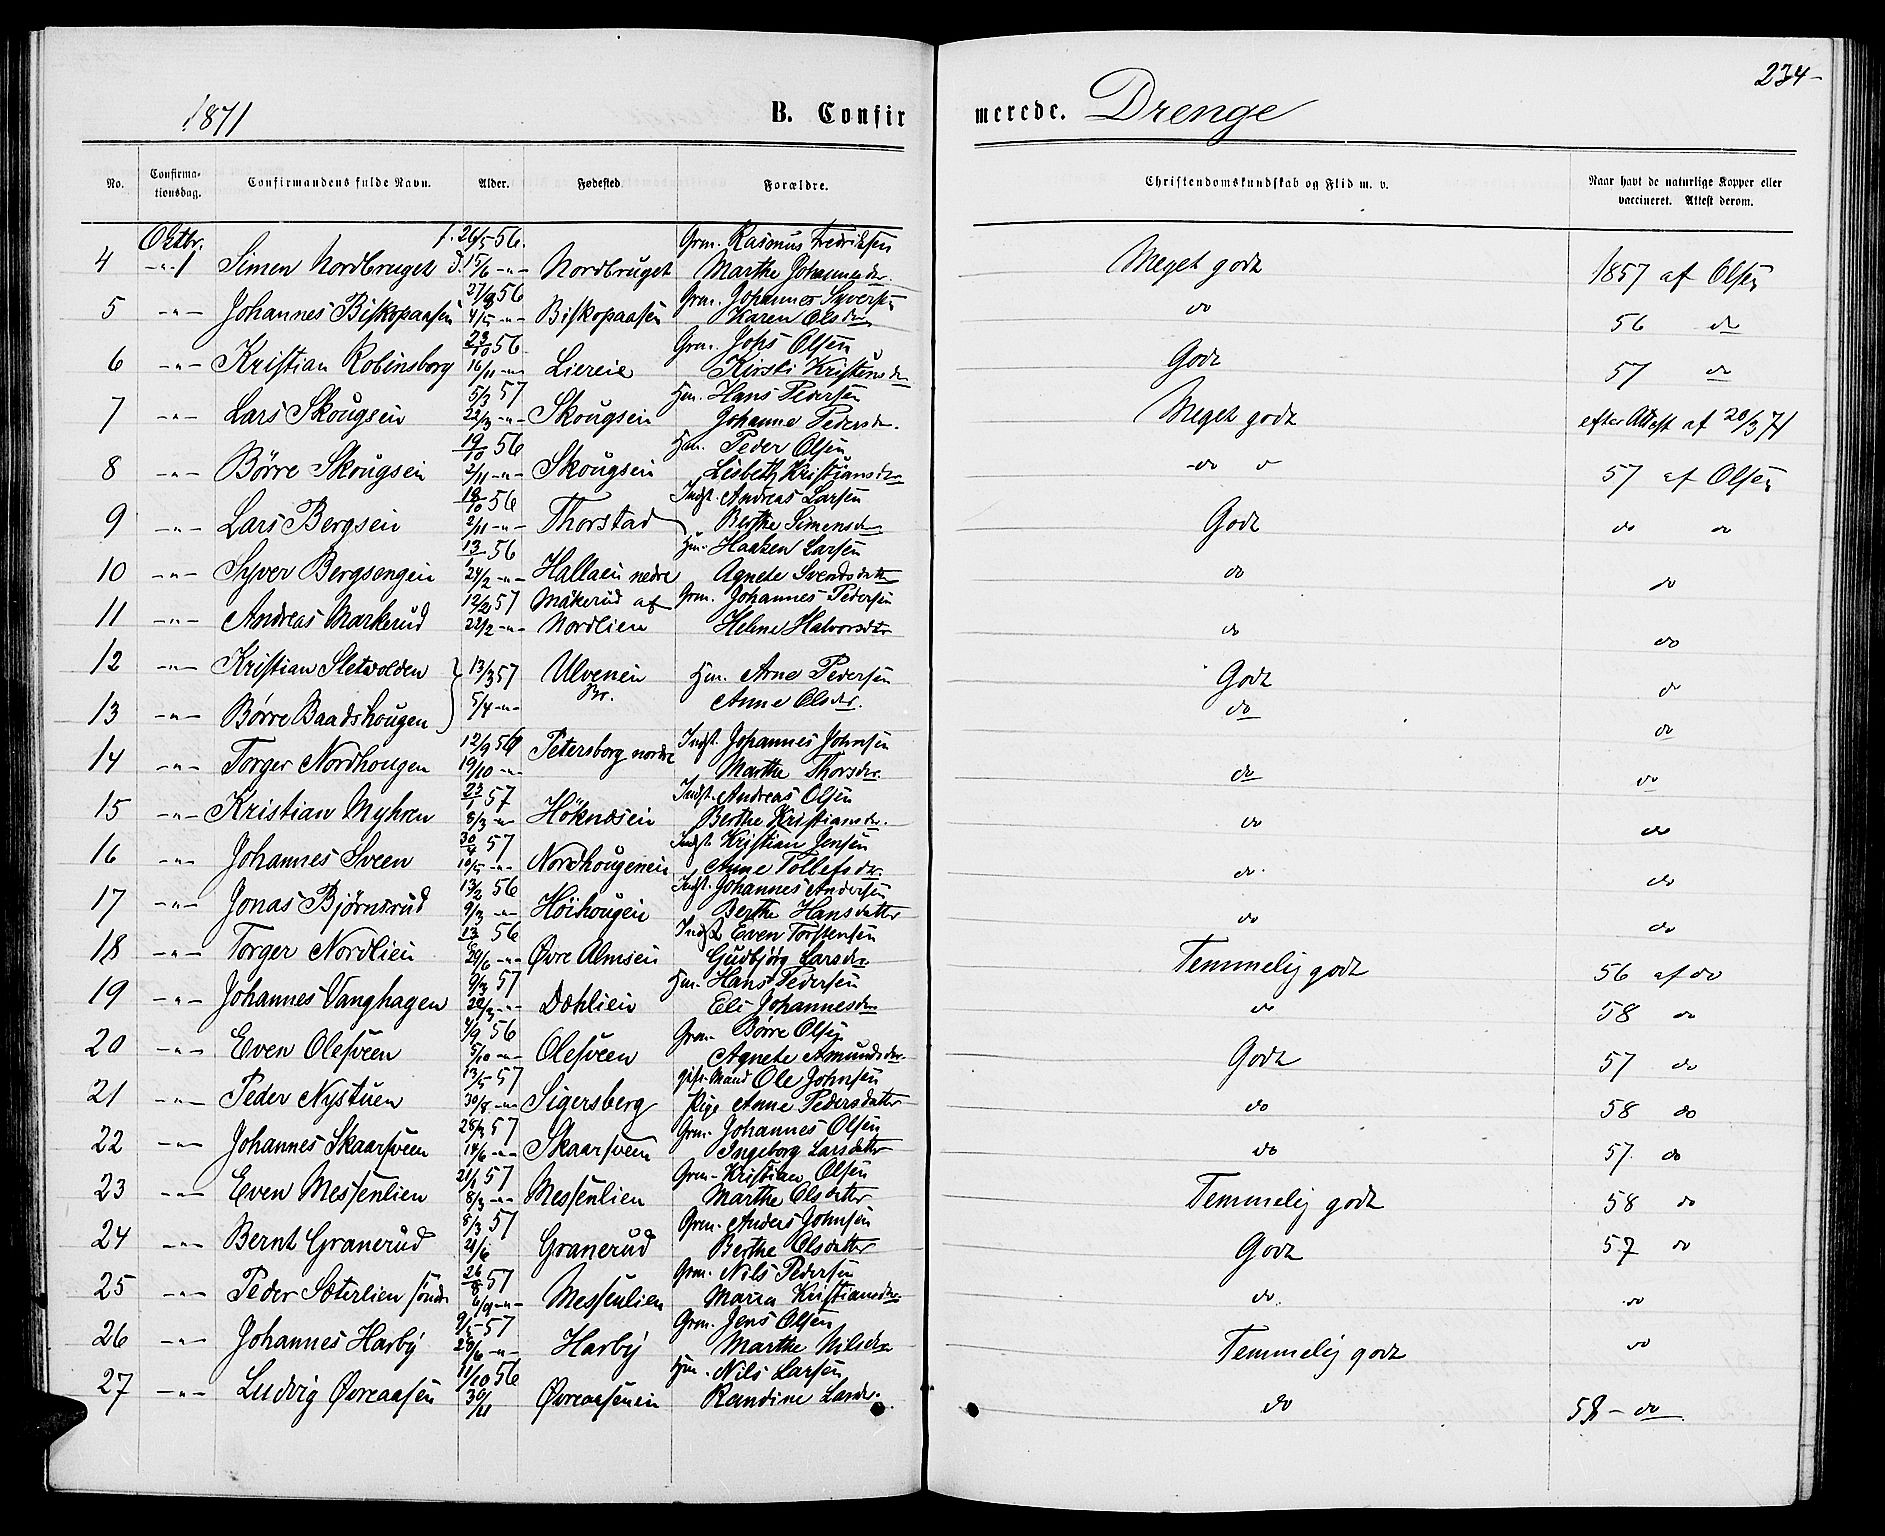 234-
1871 B. Confirmerede. Drenge
No. Confirmationsdag. Confirmandens fulde Navn. Alder. Fødested. Forældre. Christendomskundskab og Flid m. v. Naar havt de naturlige Kopper eller vaccineret. Attest derom.
Oktbr. f. 26/5 56. Grm. Rasmus Fredriksen
4 -"-1 Simen Nordbruget d. 15/6 -"- Nordbruget Marthe Johannesdr. Meget godt 1857 af Olsen
27/3 56 Grm. Johannes Syversen
5 -"- Johannes Biskopaasen 4/5 -"- Biskopaasen Karen Olsdr. do 56 do
23/10 56 Grm. Johs Olsen
6 -"- Kristian Robinsborg 16/11 -"- Liereie Kirsti Kristensdr Godt 57 do
5/3 57 Hm. Hans Pedersen
7 -"- Lars Skougsein 22/3 -"- Skougsein Johanne Pedersdr. Meget godt efter Attest af 20/3 71
19/10 56 Hm. Peder Olsen
8 -"- Børre Skougsein 2/11 -"- Skougsein Lisbeth Kristiansdr -do 57 af Olsen
56 Indst. Andreas Larsen
9 -"- Lars Bergsein 2/11 -"- Thorstad Berthe Simensdr Godt do do
13/1 56 Hm. Haaken Larsen
10 -"- Syver Bergsengen 24/2 -"- Hallaein nedre Agnete Svendsdatter do do
12/2 57 Makerud af Grm. Johannes Pedersen
11 -"- Andreas Markerud 22/2 -"- Nordlien Helene Halvorsdtr do do
12 -"- Kristian Sletvolden 13/3 57 Ulvenein Hm. Arne Pedersen Godt do
13 -"- Børre Baadshougen 5/4 -"- Br. Anne Olsdr. do do
12/9 56 Petersborg nordre Indst. Johannes Johnsen
14 -"- Torger Nordhougen 19/10 -"- Marthe Thorsdr. do do
23/1 57 Indst. Andreas Olsen
15 -"- Kristian Myhren 8/3 -"- Höknæsein Berthe Kristiansdr. do do
30/4 57 Indst Kristian Jensen
16 -"- Johannes Sveen 10/5 -"- Nordhougenein Anne Tollefsdr. do. do
13/2 56 Indst. Johannes Andersen
17 -"- Jonas Bjørnsrud 9/3 -"- Höihougein Berthe Hansdatter do do
13/6 56 Indst Even Torstensen
18 -"- Torger Nordlien 29/6 -"- Øvre Almsein Gudbjørg Larsdr. Temmelig godt 56 af do
9/3 57 Hm. Hans Pedersen
19 -"- Johannes Vanghagen 22/3 -"- Dæhlien Eli Johannesdr do 58 do
4/9 56 Grm. Børre Olsen
20 -"- Even Olesveen 5/10 -"- Olesveen Agnete Amundsdr. Godt 57 do
13/5 57 gift Mand Ole Johnsen
21 -"- Peder Nystuen 30/8 -"- Sigersberg Pige Anne Pedersdatter do 58 do
57 Grm. Johannes Olsen
22 -"- Johannes Skaarsveen 14/6 -"- Skaarsveen Ingeborg Larsdatter do 57. do
21/1 57 Grm. Kristian Olsen
23 -"- Even Messenlien 8/3 -"- Messenlien Marthe Olsdatter Temmelig godt 58 do
8/3 57 Grm. Anders Johnsen
24 -"- Bernt Granerud 21/6 Granerud Berthe Olsdatter Godt 57 do
26/8 57 Grm. Nils Pedersen
25 -"- Peder Sæterlien søndr 6/9 -"- Messenlien Maren Kristiansdr do. do
9/5 57 Grm. Jens Olsen
26 -"- Johannes Harby 28/6 -"- Harby Marthe Nilsdr Temmelig godt do
11/10 56 Hm. Nils Larsen
27 -"- Ludvig Øvreaasen 30/11 Øvreaasenein Randine Larsdr. do 58 - do